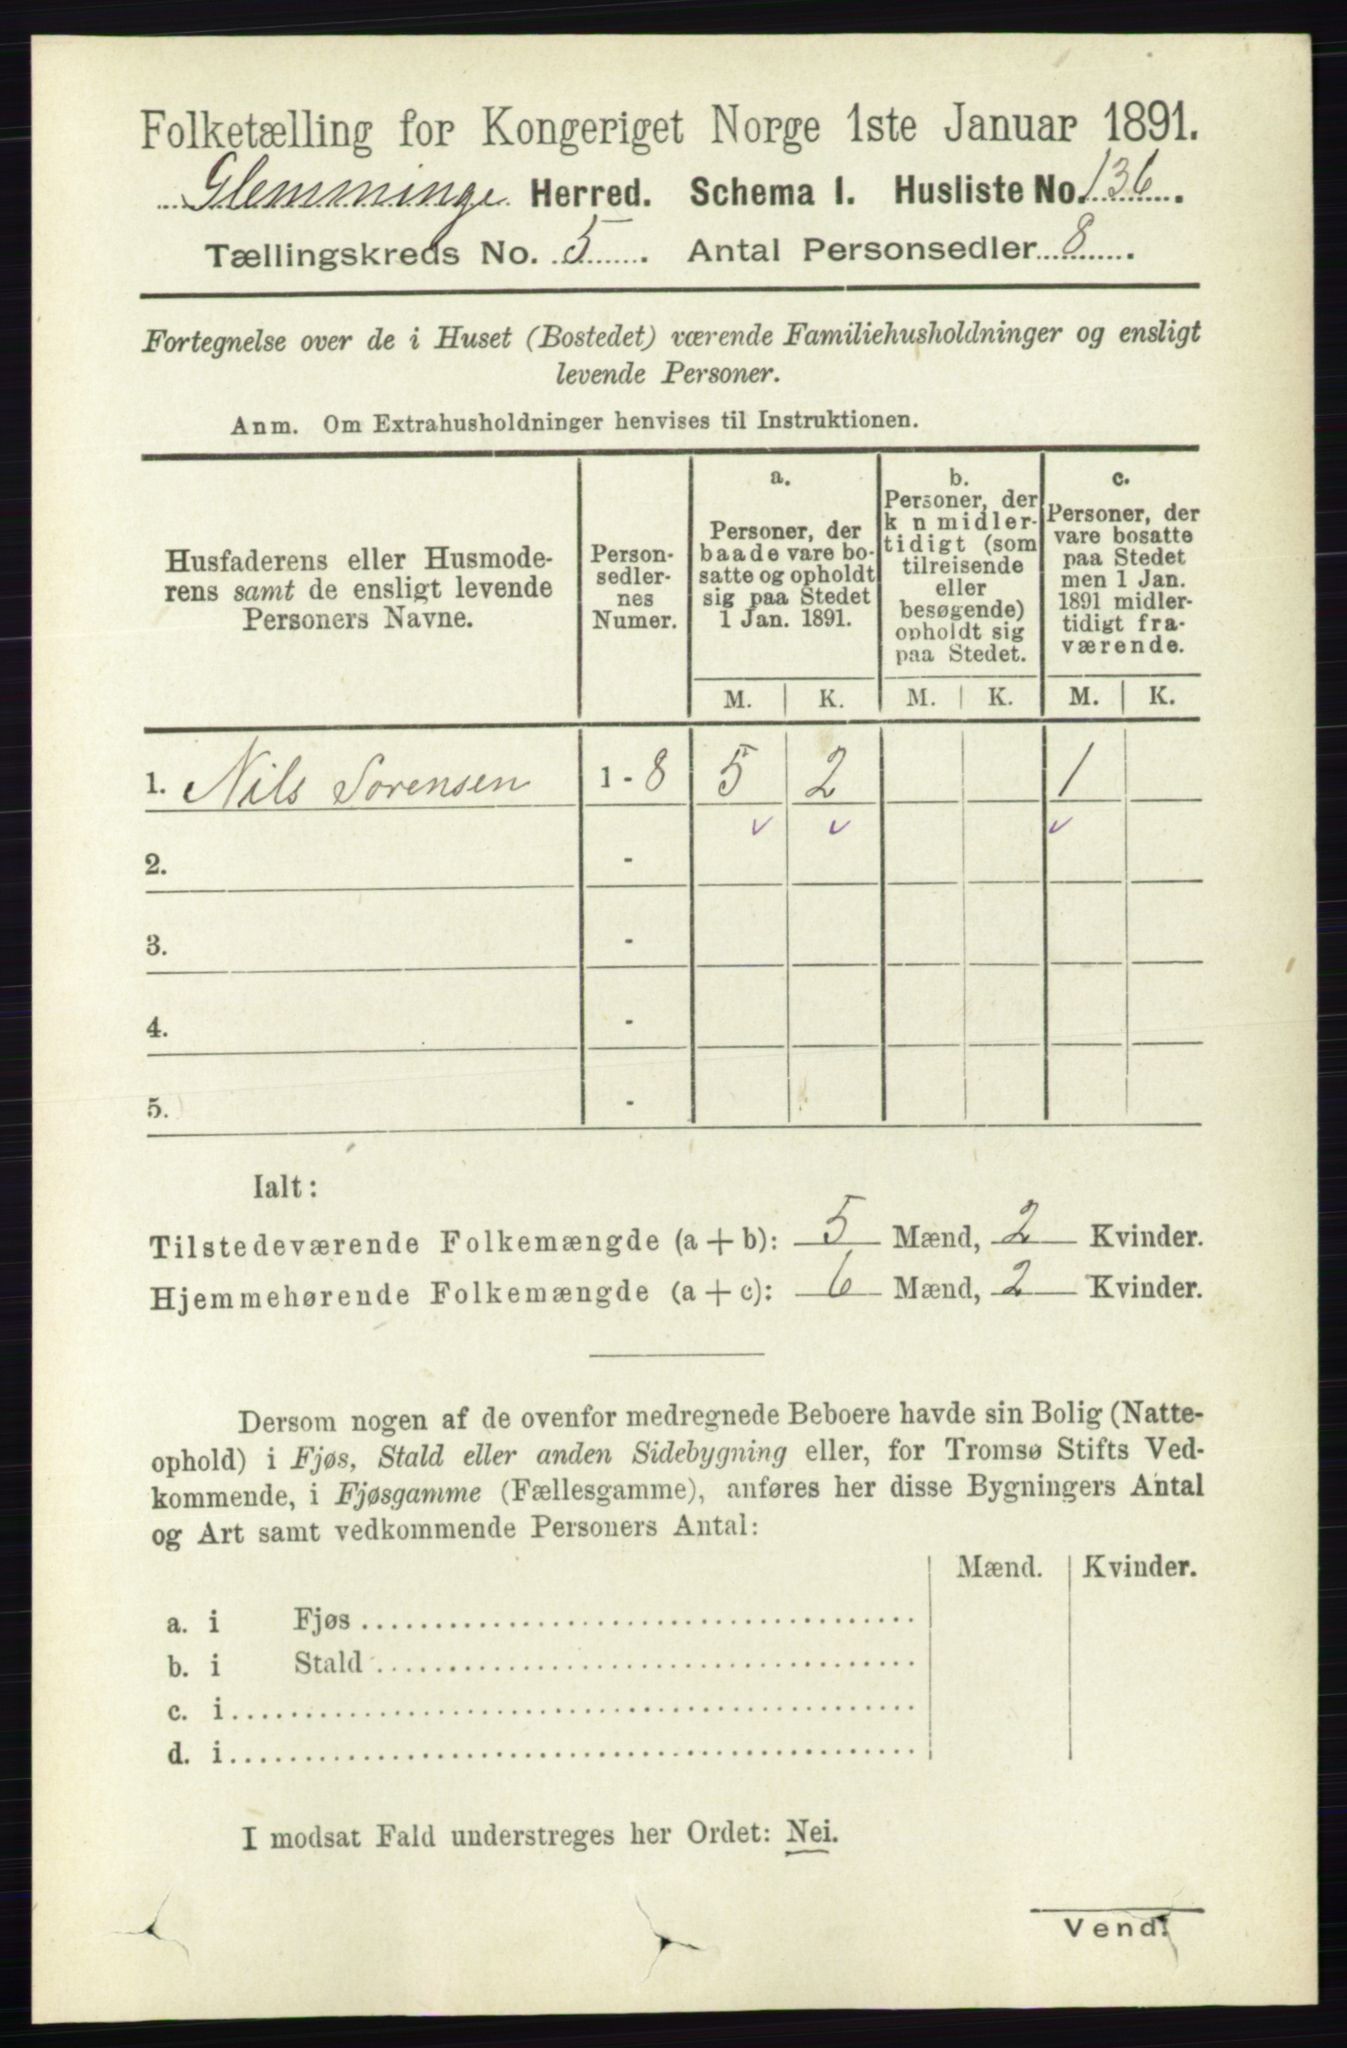 Folketælling for Kongeriget Norge 1ste Januar 1891.
Glemminge Herred. Schema 1. Husliste No. 136.
Tællingskreds No. 5. Antal Personsedler 8.
Fortegnelse over de i Huset (Bostedet) værende Familiehusholdninger og ensligt
levende Personer.
Anm. Om Extrahusholdninger henvises til Instruktionen.
Husfaderens eller Husmode-
rens samt de ensligt levende
Personers Navne.
Person-
sedler-
nes
Numer.
a.
Personer, der
baade vare bo-
satte og opholdt
sig paa Stedet
1 Jan. 1891.
b.
Personer, der
k n midler-
tidigt (som
tilreisende
eller
besøgende)
opholdt sig
paa Stedet.
c.
Personer, der
vare bosatte
paa Stedet
men 1 Jan.
1891 midler-
tidigt fra-
værende.
M. K. M. K. M. K.
1. Nils Sorensen 1 - 8 5 2 1
2. -
3. -
4. -
5. -
Ialt:
Tilstedeværende Folkemængde (a + b): 5 Mænd, 2 Kvinder.
Hjemmehørende Folkemængde (a + c): 6 Mænd, 2 Kvinder.
Dersom nogen af de ovenfor medregnede Beboere havde sin Bolig (Natte-
ophold) i Fjøs, Stald eller anden Sidebygning eller, for Tromsø Stifts Ved-
kommende, i Fjøsgamme (Fællesgamme), anføres her disse Bygningers Antal
og Art samt vedkommende Personers Antal:
Mænd. Kvinder.
a. i Fjøs
b. i Stald
c. i
d. i
I modsat Fald understreges her Ordet: Nei.
Vend!